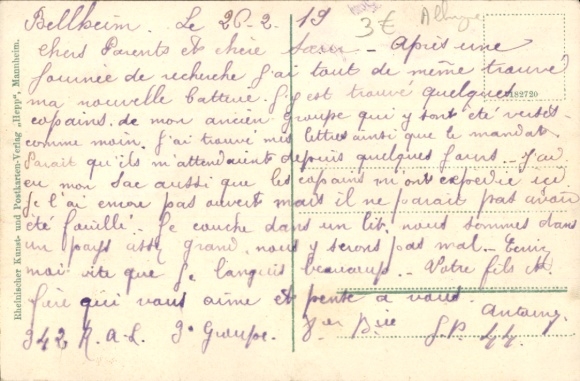 Bellheim. Le 26-2-19
3€ Allmge
Chers Parents et chère Sœur - Après une
journée de recherche j'ai tout de même trouvé
ma nouvelle batterie. J'y est trouvé quelques
182720
copains de mon ancien groupe qui y sont été versés
comme moin. J'ai trouvé mes lettres ainsi que le mandat
Parait qu'ils m'attendaient depuis quelques jours - J'ai
eu mon Sac aussi que les copains m'ont expédié ici
je l'ai encore pas ouvert mais il ne parait pas avoir
été fouillé. Je couche dans un lit. nous sommes dans
un pays assez grand, nous y serons pas mal - Ecriv
moi vite que je languis beaucoup. - Votre fils et
frère qui vous aime et pense a vous.
Antoine
342 R.A.L 3e Groupe. 7em Brie S.P.
Rheinischer Kunst- und Postkarten-Verlag „Hepp“, Mannheim.